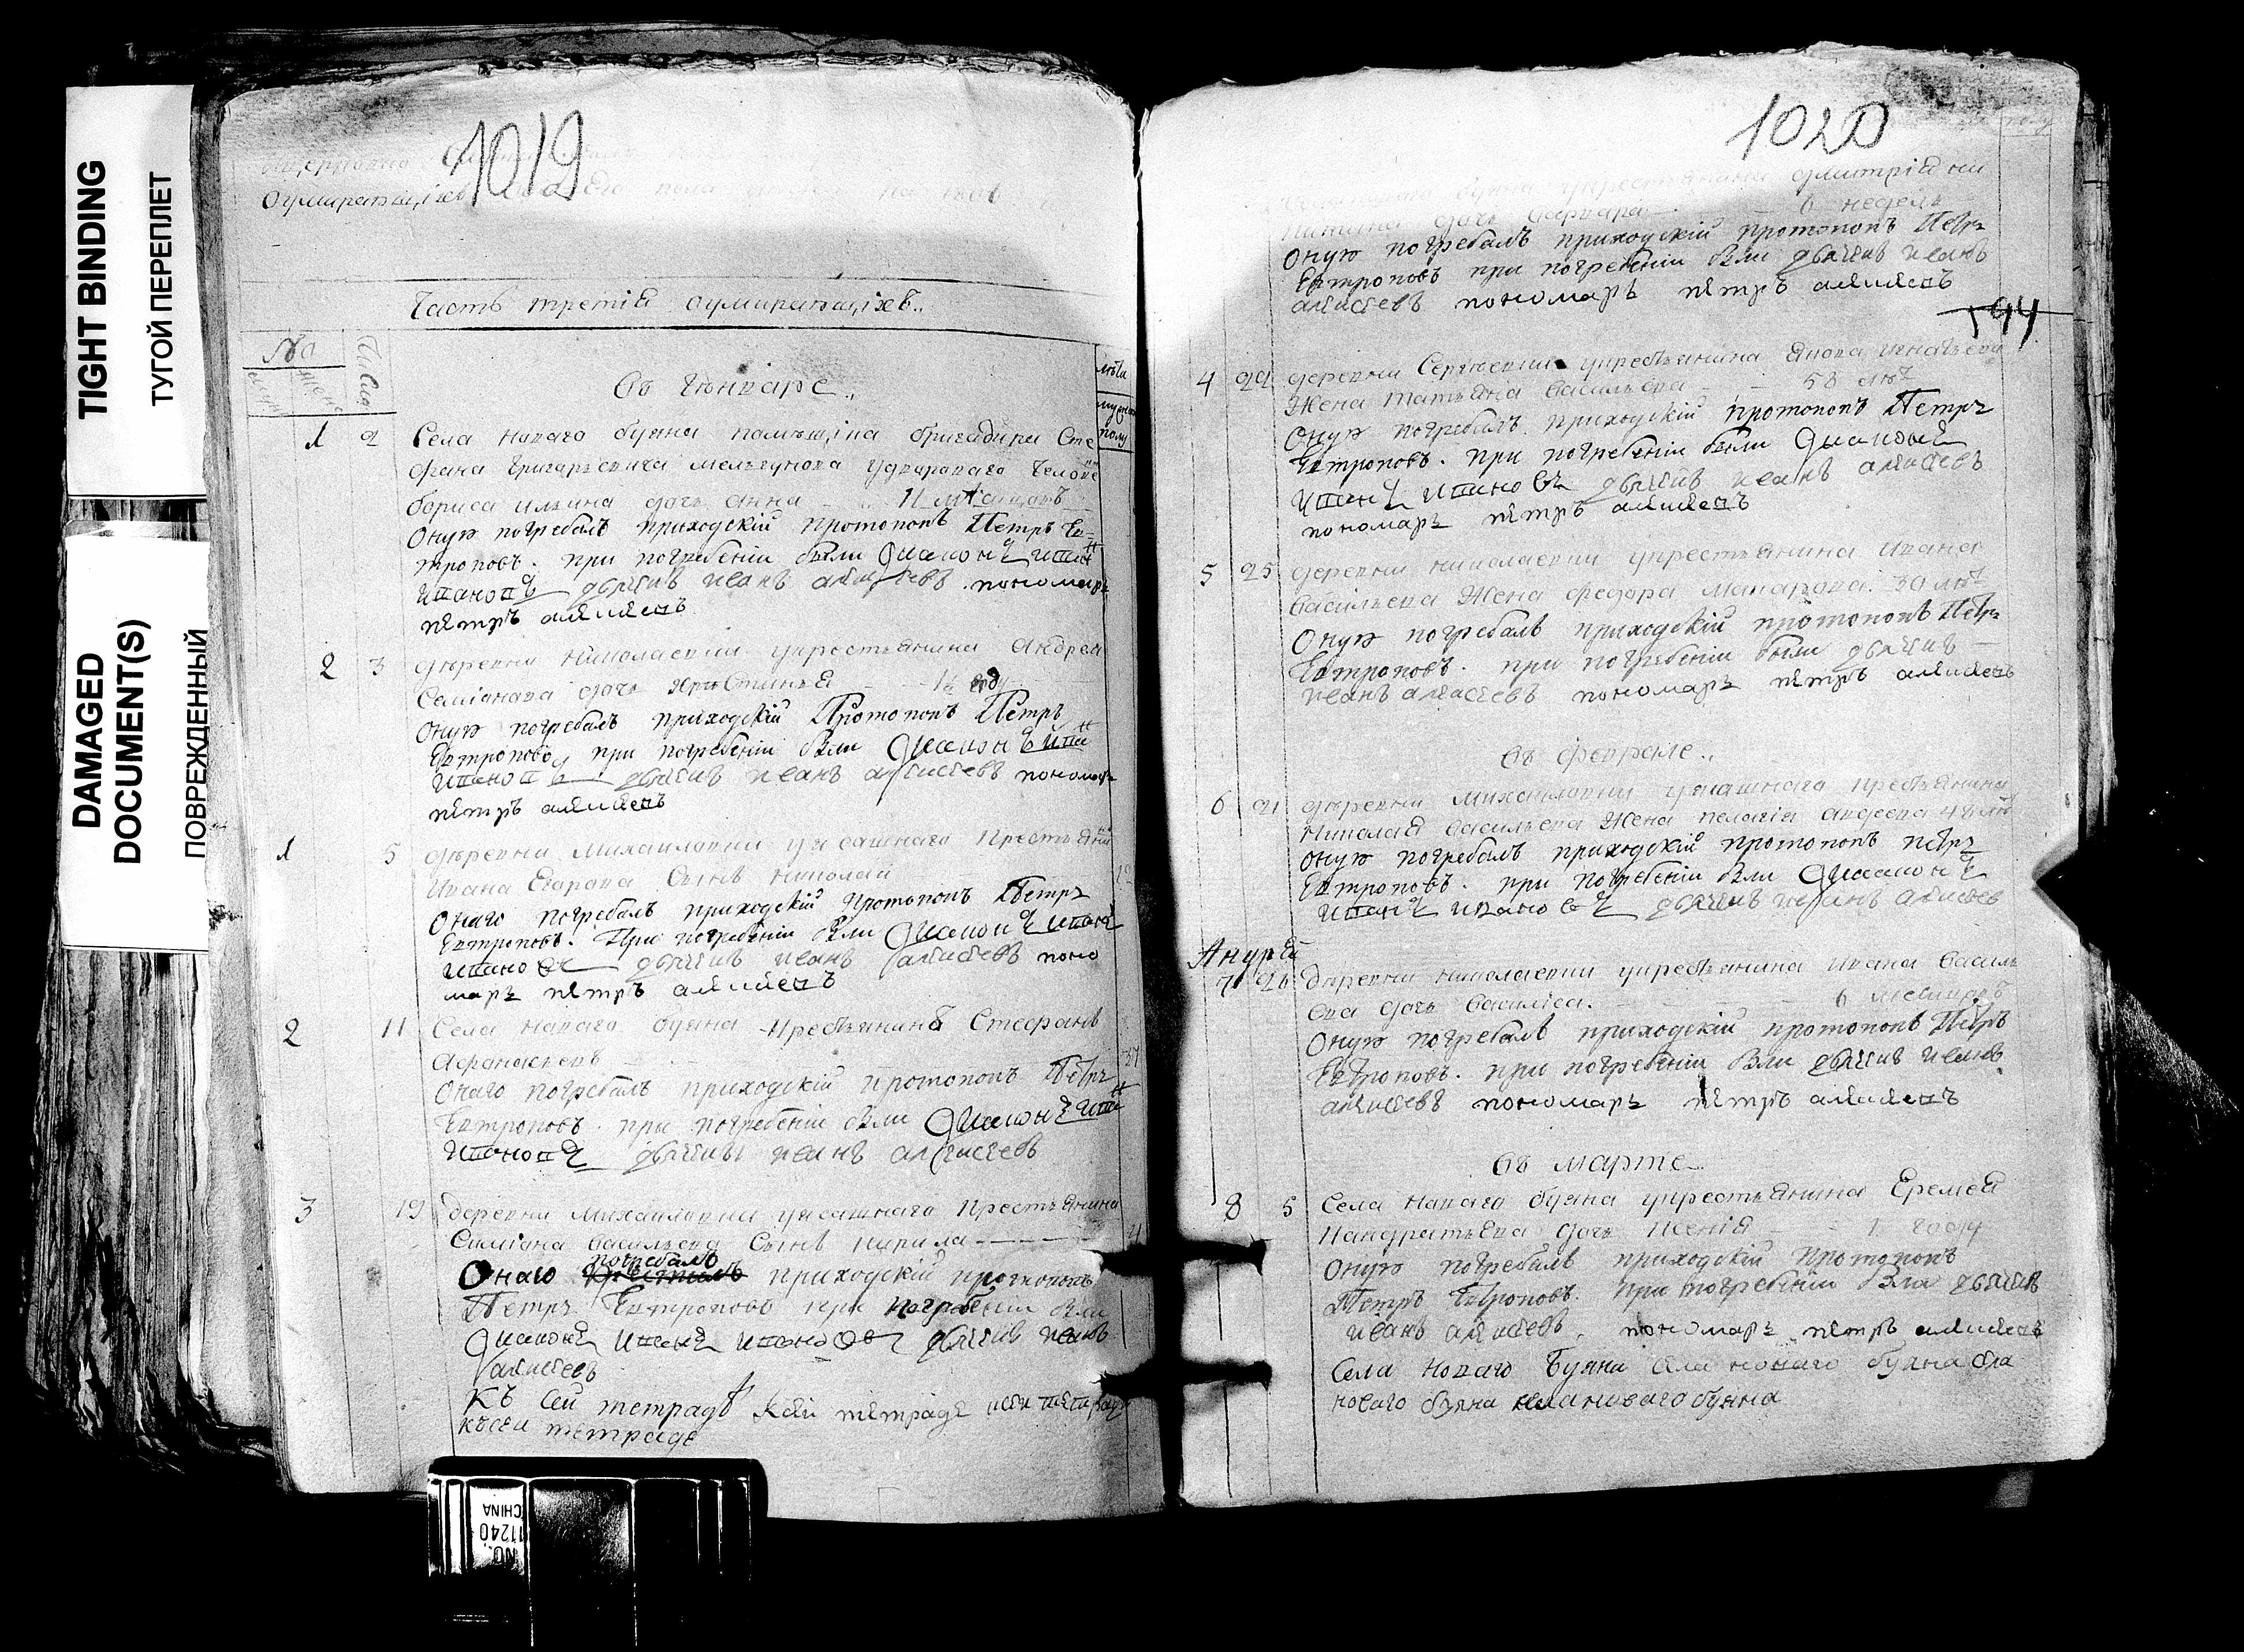 TIGHT BINDING
ТУГОЙ ПЕРЕПЛЕТ
DAMAGED
DOCUMENT(S)
ПОВРЕЖДЕННЫЙ
1019
Оумирающихъ
Часть третія оумирающихъ..
№
Число
лѣта
мужска
полу
въ Генваре.,
1 2 Села новаго буяна помѣщика бригадира Сте
фана григарьевича мельгунова удвороваго челове
бориса ильина дочь анна 11 мѣсицовъ
Оную погребалъ приходскій протопопъ Петръ Ев
троповъ. при погребеніи были Диаконъ Иванъ
Ивановъ дьячекъ иванъ алексѣевъ пономарь
петръ алексеевъ
2 3 деревни николаевки укрестьянина Андрея
Симіонова дочь Христинья 1½ году
Оную погребалъ приходскій Протопопъ Петръ
Евтроповъ при погребеніи были Диаконъ Иванъ
Ивановъ дьячекъ иванъ алексѣевъ пономарь
петръ алексеевъ
1 5 деревни михаиловки уясашнаго крестьяни
Ивана Егорова Сынъ николай
Онаго погребалъ приходскій протопопъ Петръ
Евтроповъ. При погребеніи были Диаконъ Иванъ
Ивановъ дьячекъ иванъ алексѣевъ поно
марь петръ алексеевъ
2 11 Села новаго буяна крестьянинъ Стефанъ
Афонасьевъ 37
Онаго погребалъ приходскій протопопъ Петръ
Евтроповъ. при погребеніи были Диаконъ Иванъ
Ивановъ дьячекъ иванъ алексѣевъ
3 19 деревни михаиловки уясашнаго крестьянина
Симіона васильева Сынъ кирила 4
погребалъ
Онаго приходскій протопопъ
Петръ Евтроповъ при погребеніи были
Диаконъ Иванъ Ивановъ дьячекъ иванъ
алексѣевъ
Къ сей тетрадѣ Ксей тетраде ксеи тетраде
къ сеи тетраде
NO.
11240
CHINA
1020
буяна укрестьянина дмитрія ни
китина дочь варвара 6 недель
Оную погребалъ приходскій протопопъ Петръ
Евтроповъ при погребеніи были дьячекъ иванъ
алексѣевъ пономарь петръ алексеевъ
594
4 22 деревни Сергиевки укрестьянина Якова игнатьева
Жена татьяна васильева 58 летъ
Оную погребалъ приходскій протопопъ Петръ
Евтроповъ. при погребеніи были Диаконъ
Иванъ Ивановъ дьячекъ иванъ алексѣевъ
пономарь петръ алексеевъ
5 25 деревни николаевки укрестьянина Ивана
васильева Жена федора макарова. 30 летъ
Оную погребалъ приходскій протопопъ Петръ
Евтроповъ. при погребеніи были дьячекъ
иванъ алексѣевъ пономарь петръ алексеевъ
въ феврале.,
6 21 деревни михаиловки уясашнаго крестьянина
николая васильева жена пелагія авдеева 48 летъ
Оную погребалъ приходскій протопопъ петръ
Евтроповъ. при погребеніи были Диаконъ
Иванъ Ивановъ дьячекъ иванъ алексѣев
Андрей
7 26 деревни николаевки укрестьянина Ивана Василь
ева дочь Василиса. 6 месицовъ
Оную погребалъ приходскій протопопъ Петръ
Евтроповъ. при погребеніи были дьячекъ иванъ
алексѣевъ пономарь петръ алексеевъ
въ марте
8 5 Села новаго буяна укрестьянина Еремея
Кандратьева дочь ксенія 1 году
Оную погребалъ приходскій протопопъ
Петръ Евтроповъ. при погребеніи были дьячекъ
иванъ алексѣевъ. пономарь петръ алексеевъ
Села новаго буяна села новаго буяна села
новаго буяна села новаго буяна